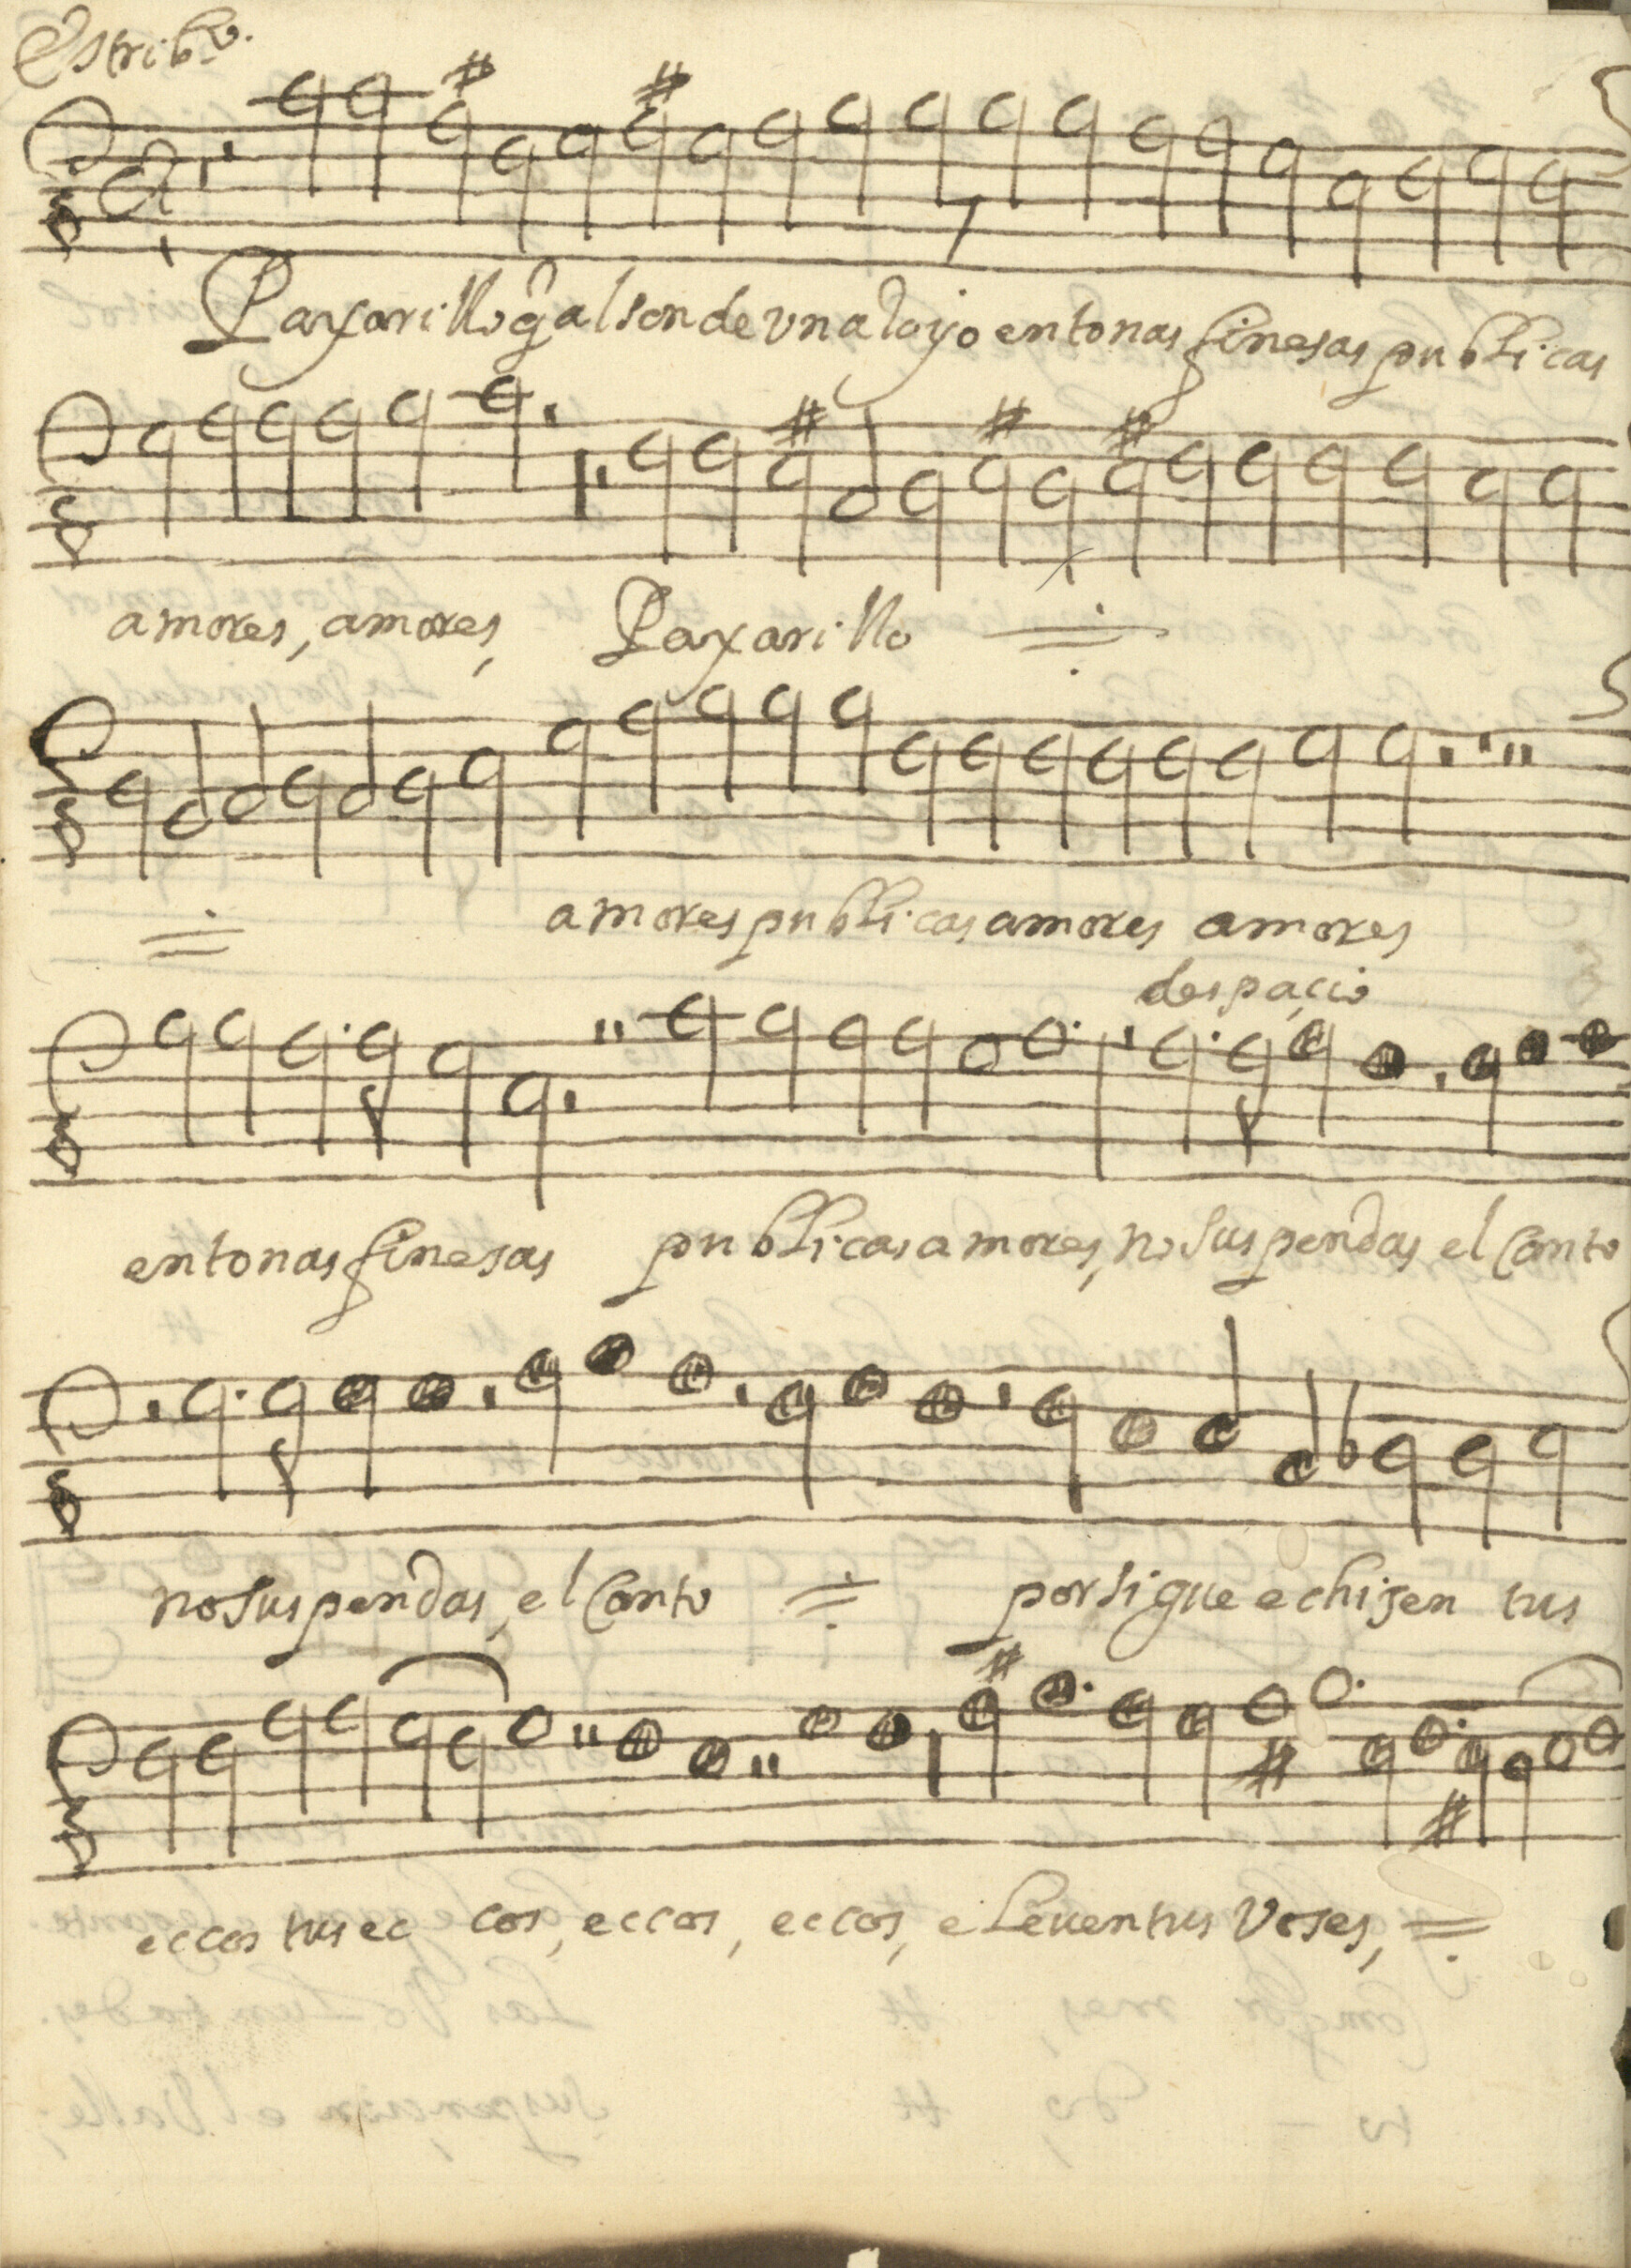 Estribo.
Paxarillo q̃ al son de vn aRoyo entonas finesas publicas
amores, amores, Paxarillo
amores publicas amores amores
despacio
entonas finesas publicas amores, no suspendas el Canto
no suspendas, el Canto porsigue echisen tus
eccos tus ec cos, eccos, eccos, eLeuen tus Voses,